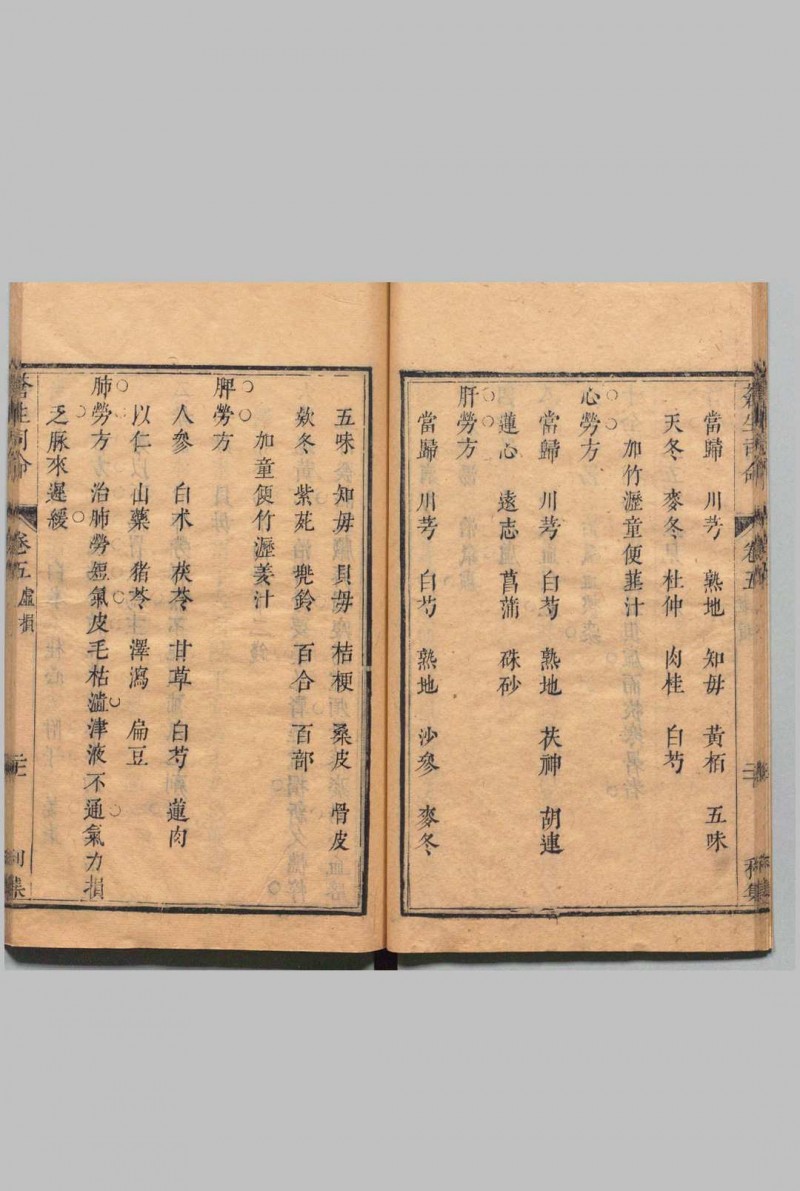 當歸 川芎 熟地 知毋 黃栢 五味
天冬 麥冬 杜仲 肉桂 白芍
加竹瀝童便韮汁
心勞方
當歸 川芎 白芍 熟地 茯神 胡連
蓮心 遠志 菖蒲 硃砂
肝勞方
當歸 川芎 白芍 熟地 沙參 麥冬
五味 知毋 貝毋 桔梗 桑皮 骨皮
欵冬 紫苑 兠鈴 百合 百部
加童便竹瀝姜汁
脾勞方
人參 白朮 茯苓 甘草 白芍 蓮肉
以仁 山藥 猪苓 澤瀉 扁豆
肺勞方 治肺勞短氣皮毛枯澁津液不通氣力損
乏脉來遲緩
蒼生司命 卷五 虛損